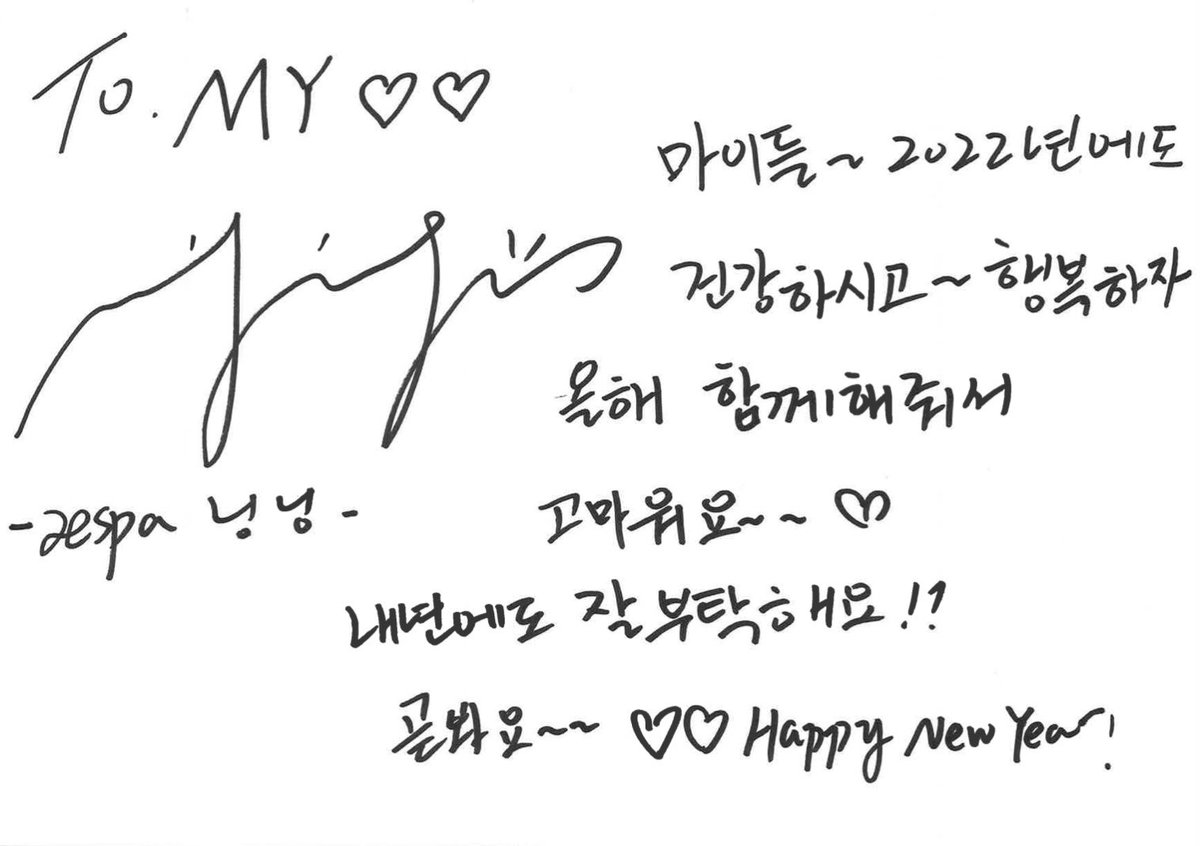 To. MY ♡♡
마이들~ 2022년에도
건강하시고~ 행복하자
올해 함께해줘서
고마워요~~ ♡
내년에도 잘 부탁해요!!
곧봐요~~ ♡♡ Happy New Year!
-aespa 닝닝-